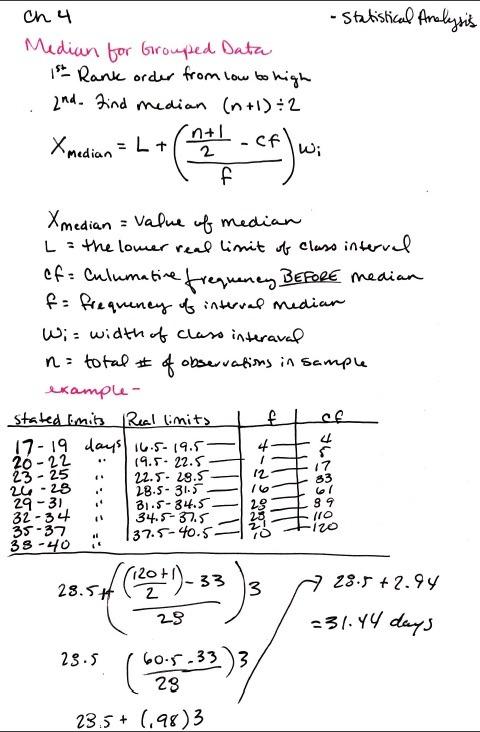 Ch 4
- Statistical Analysis
Median for Grouped Data
1st - Rank order from low to high
2nd - Find median (n+1) ÷ 2
X median = L + ( ( n+1 / 2 - cf ) / f ) Wi
X median = Value of median
L = the lower real limit of class interval
cf = Culumative frequency BEFORE median
f = frequency of interval median
Wi = width of class interaval
n = total # of observations in sample
example -
Stated limits | Real limits | f | cf
17 - 19 days 16.5 - 19.5 — 4 — 4
20 - 22 " 19.5 - 22.5 — 1 — 5
23 - 25 " 22.5 - 28.5 — 12 — 17
26 - 28 " 28.5 - 31.5 — 16 — 33
29 - 31 " 31.5 - 34.5 — 28 — 61
32 - 34 " 34.5 - 37.5 — 28 — 89
35 - 37 " 37.5 - 40.5 — 21 — 110
38 - 40 " 10 — 120
28.5 + ( ( (120+1) / 2 ) - 33 / 28 ) 3
28.5 ( 60.5 - 33 / 28 ) 3
28.5 + (.98) 3
→ 28.5 + 2.94
= 31.44 days